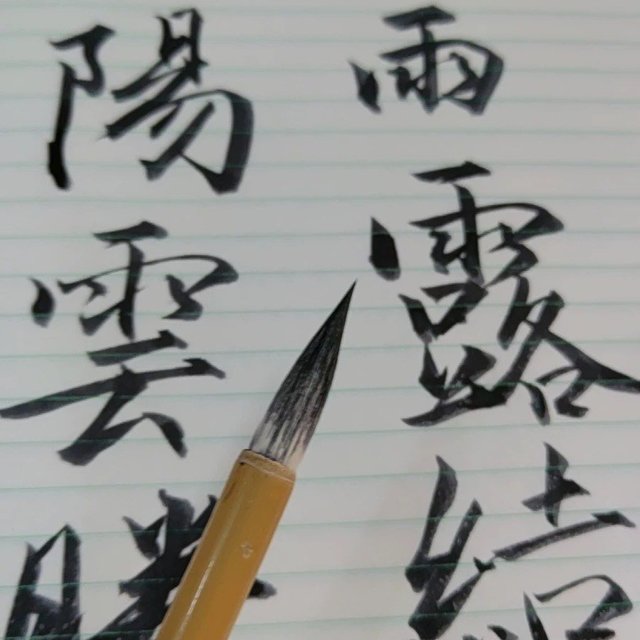 陽雲騰
雨露結